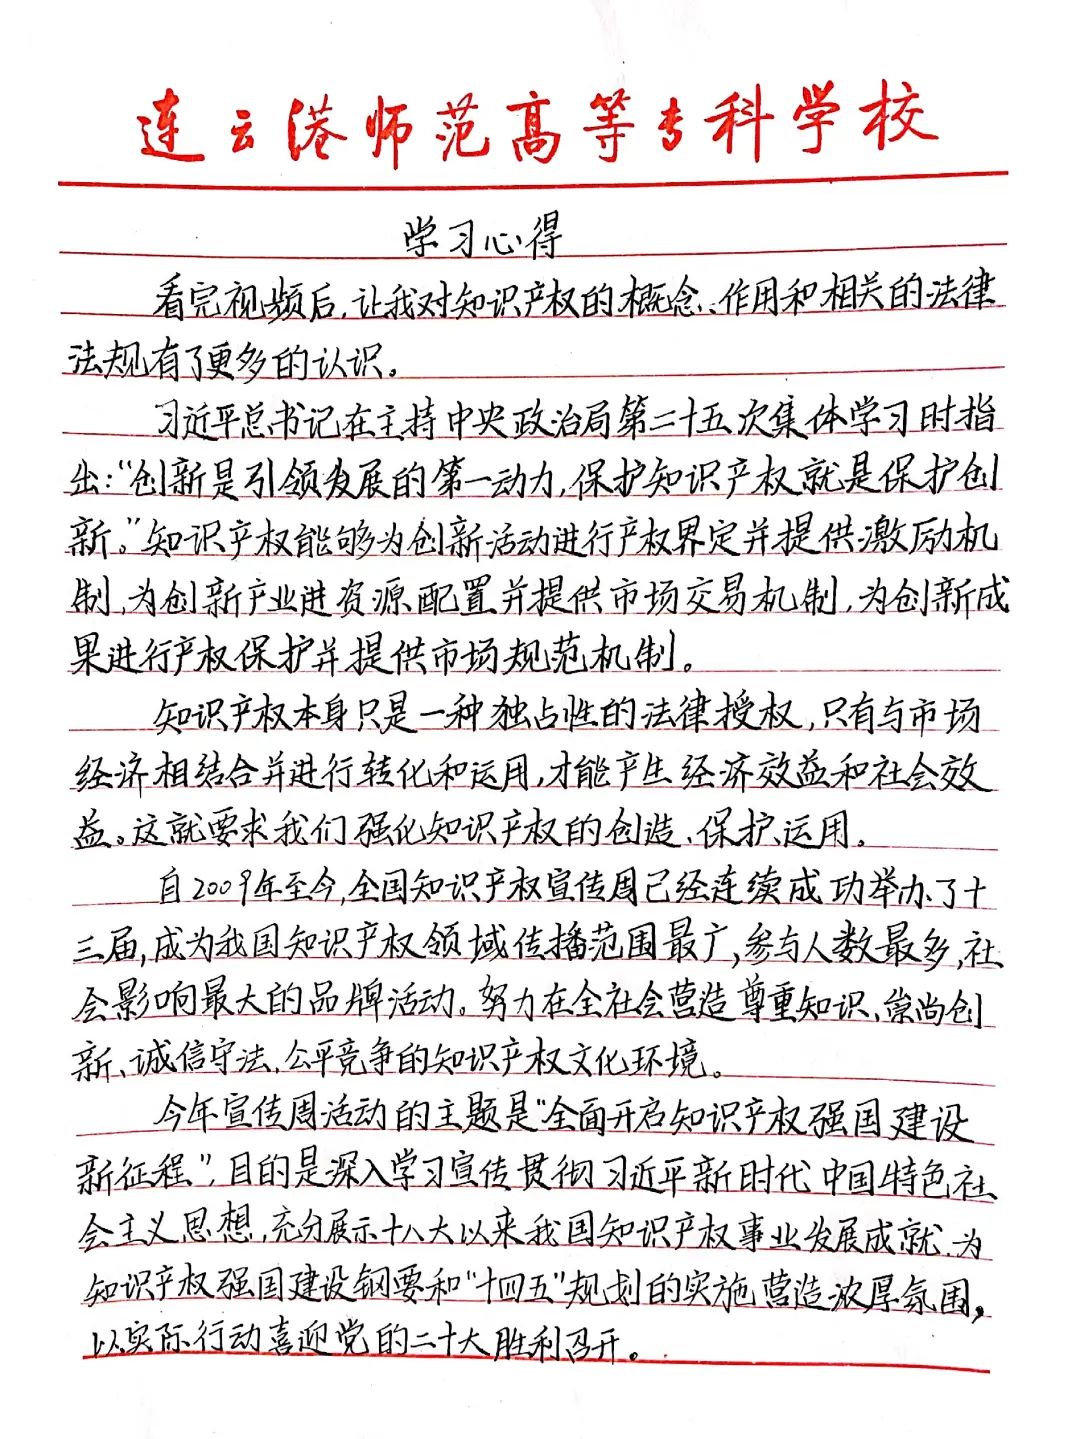 连云港师范高等专科学校
学习心得
看完视频后,让我对知识产权的概念、作用和相关的法律
法规有了更多的认识。
习近平总书记在主持中央政治局第二十五次集体学习时指
出:“创新是引领发展的第一动力,保护知识产权就是保护创
新。”知识产权能够为创新活动进行产权界定并提供激励机
制,为创新产业进资源配置并提供市场交易机制,为创新成
果进行产权保护并提供市场规范机制。
知识产权本身只是一种独占性的法律授权,只有与市场
经济相结合并进行转化和运用,才能产生经济效益和社会效
益。这就要求我们强化知识产权的创造、保护、运用。
自2009年至今,全国知识产权宣传周已经连续成功举办了十
三届,成为我国知识产权领域传播范围最广,参与人数最多,社
会影响最大的品牌活动。努力在全社会营造尊重知识、崇尚创
新、诚信守法、公平竞争的知识产权文化环境。
今年宣传周活动的主题是“全面开启知识产权强国建设
新征程”,目的是深入学习宣传贯彻习近平新时代中国特色社
会主义思想,充分展示十八大以来我国知识产权事业发展成就,为
知识产权强国建设钢要和“十四五”规划的实施营造浓厚氛围,
以实际行动喜迎党的二十大胜利召开。